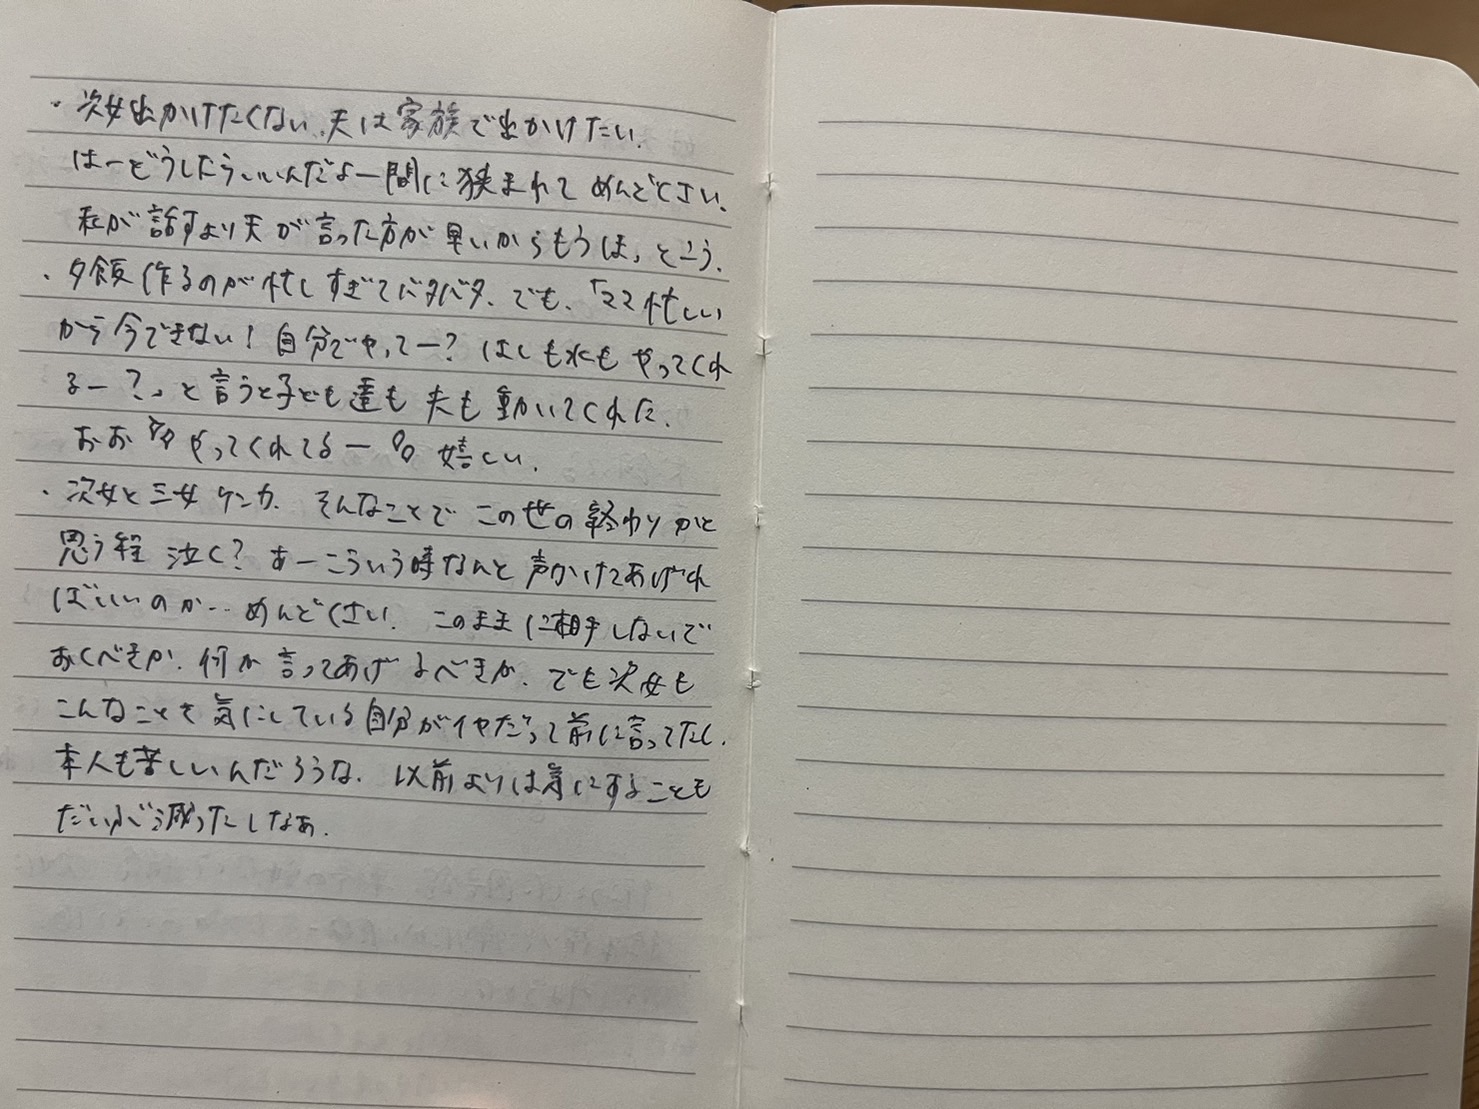 ・次女出かけたくない、夫は家族で出かけたい。
はーどうしたらいいんだよー間に挟まれてめんどくさい。
私が話すより夫が言った方が早いからもうほっとこう。
・夕飯作るのが忙しすぎてバタバタ。でも、「ママ忙しい
から今できない！自分でやってー？はしも水もやってくれ
るー？」と言うと子ども達も夫も動いてくれた。
おお やってくれてるー 嬉しい。
・次女と三女ケンカ。そんなことでこの世の終わりかと
思う程泣く？あーこういう時なんと声かけてあげれ
ばいいのか…めんどくさい。このまま相手しないで
おくべきか、何か言ってあげるべきか。でも次女も
こんなことを気にしている自分がイヤだって前に言ってたし、
本人も苦しいんだろうな。以前よりは気にすることも
だいぶ減ったしなぁ。